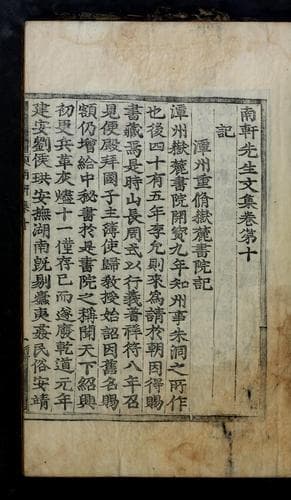 南軒先生文集卷第十
記
潭州重脩嶽麓書院記
潭州嶽麓書院開寶九年知州事朱洞之所作
也後四十有五年李允則來為請於朝因得賜
書藏焉是時山長周式以行義著祥符八年召
見便殿拜國子主簿使歸教授始詔因舊名賜
額仍增給中秘書於是書院之稱聞天下紹興
初更兵革灰燼十一僅存已而遂廢乾道元年
建安劉侯珙安撫湖南既剔蠹夷姦民俗安靖